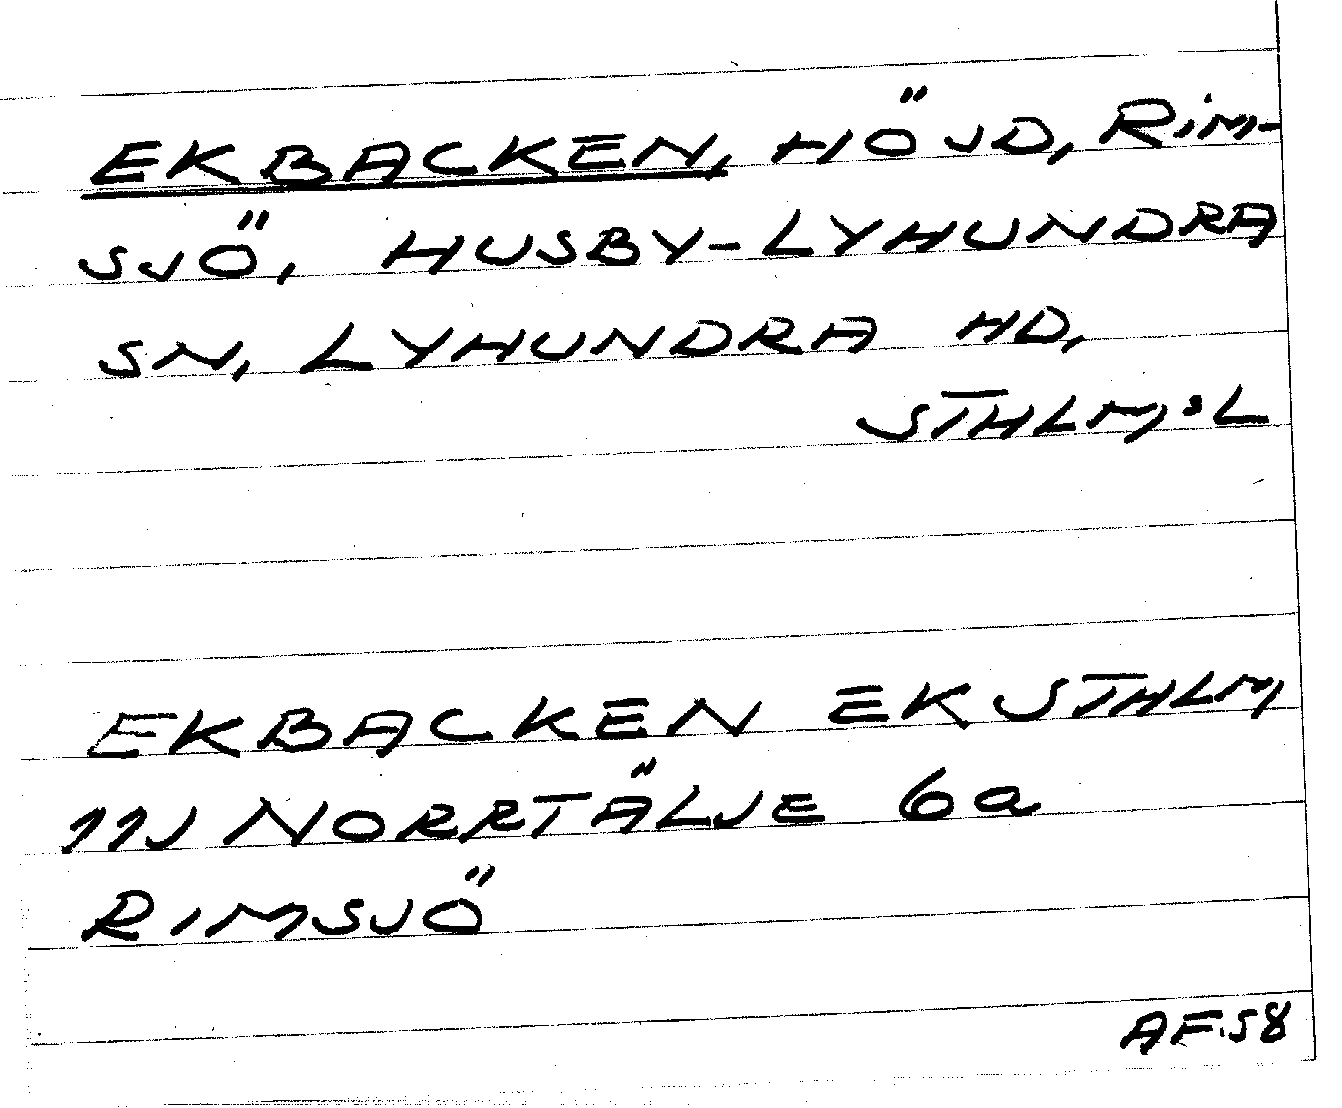 EKBACKEN, HÖJD, RIM-
SJÖ, HUSBY-LYHUNDRA
SN, LYHUNDRA HD,
STHLM:L
EKBACKEN EK STHLM
11J NORRTÄLJE 6a
RIMSJÖ
AF58